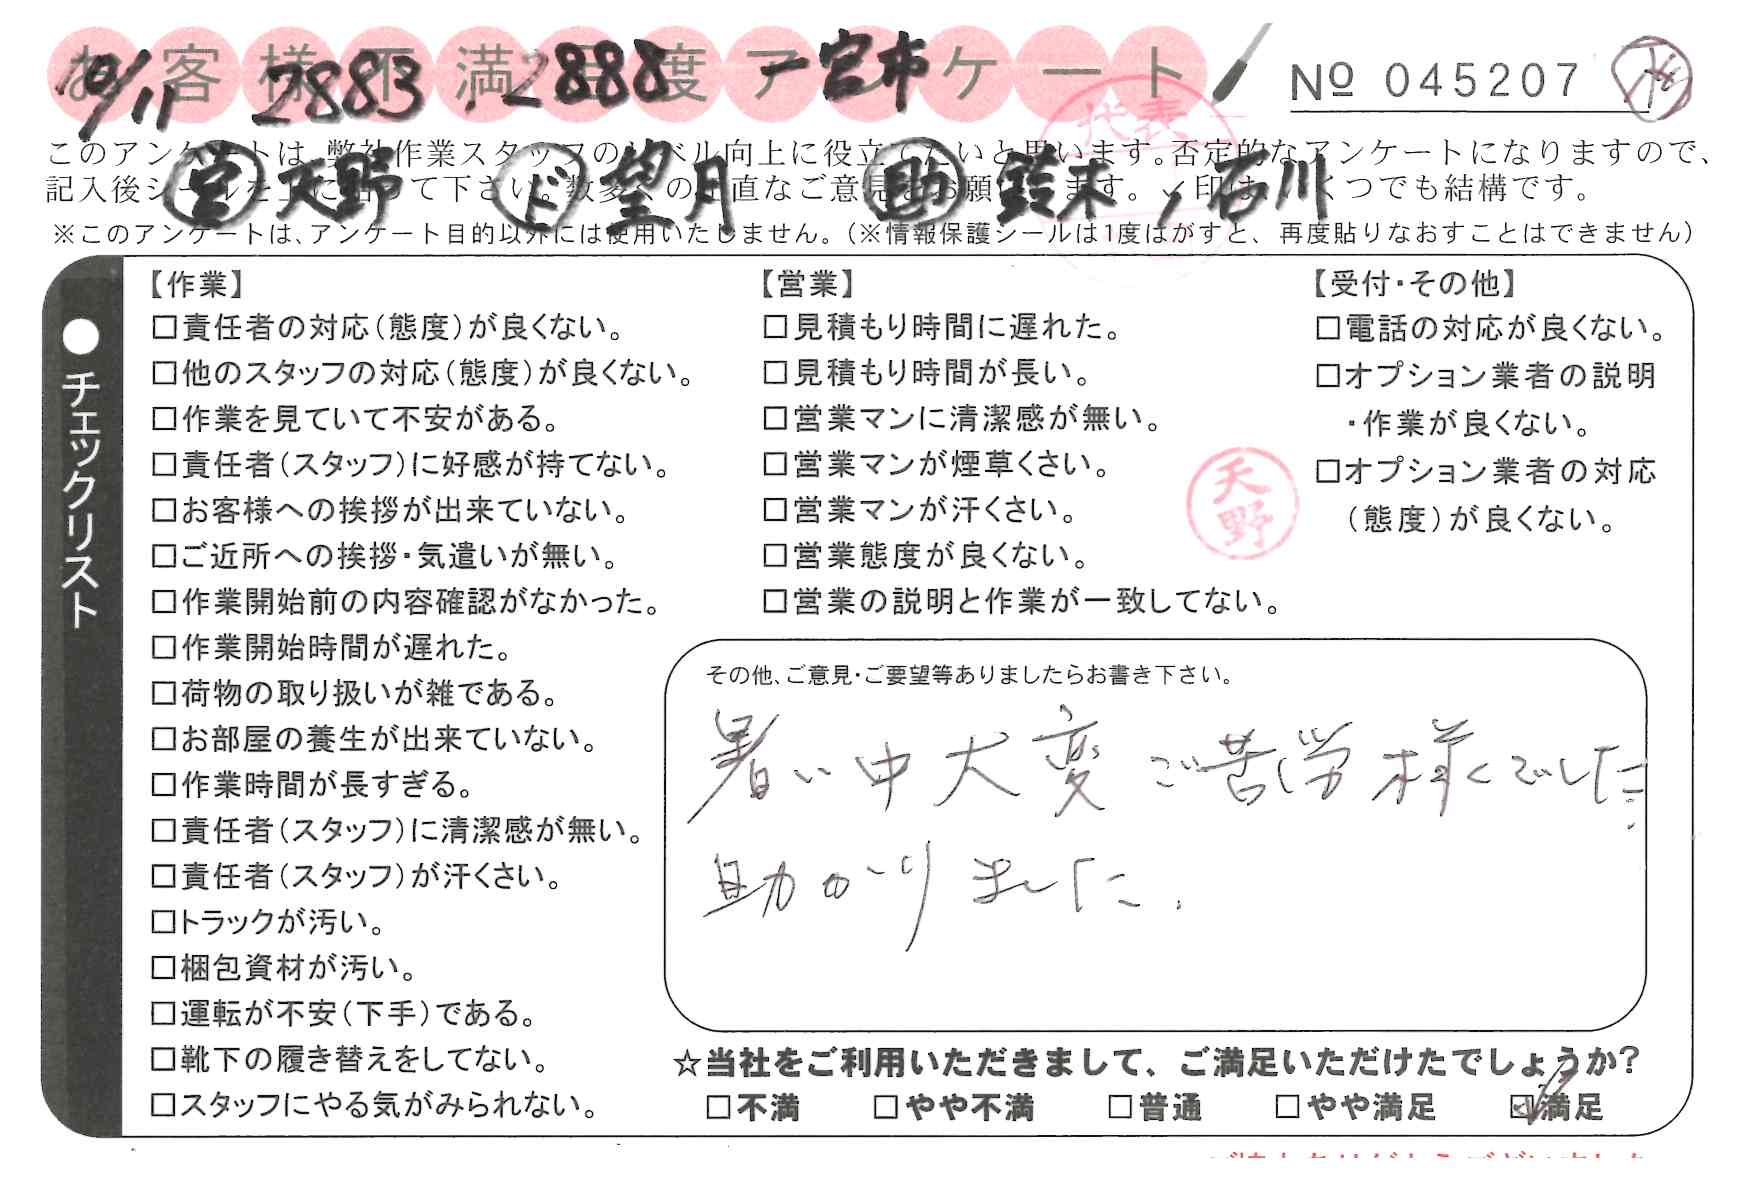 お客様不満足度アンケート
10/11 2883 , 2888 一宮市
№ 045207
代表
このアンケートは、弊社作業スタッフのレベル向上に役立てたいと思います。否定的なアンケートになりますので、
記入後シールを上に貼って下さい。数多くの正直なご意見をお願いします。✓印はいくつでも結構です。
天野 ド 望月 助 鈴木 , 石川
※このアンケートは、アンケート目的以外には使用いたしません。(※情報保護シールは1度はがすと、再度貼りなおすことはできません)
●チェックリスト
【作業】
□責任者の対応(態度)が良くない。
□他のスタッフの対応(態度)が良くない。
□作業を見ていて不安がある。
□責任者(スタッフ)に好感が持てない。
□お客様への挨拶が出来ていない。
□ご近所への挨拶・気遣いが無い。
□作業開始前の内容確認がなかった。
□作業開始時間が遅れた。
□荷物の取り扱いが雑である。
□お部屋の養生が出来ていない。
□作業時間が長すぎる。
□責任者(スタッフ)に清潔感が無い。
□責任者(スタッフ)が汗くさい。
□トラックが汚い。
□梱包資材が汚い。
□運転が不安(下手)である。
□靴下の履き替えをしてない。
□スタッフにやる気がみられない。
【営業】
□見積もり時間に遅れた。
□見積もり時間が長い。
□営業マンに清潔感が無い。
□営業マンが煙草くさい。
□営業マンが汗くさい。
□営業態度が良くない。
□営業の説明と作業が一致してない。
【受付・その他】
□電話の対応が良くない。
□オプション業者の説明
・作業が良くない。
□オプション業者の対応
(態度)が良くない。
天野
その他、ご意見・ご要望等ありましたらお書き下さい。
暑い中大変ご苦労様でした
助かりました.
☆当社をご利用いただきまして、ご満足いただけたでしょうか?
□不満 □やや不満 □普通 □やや満足 ☑満足